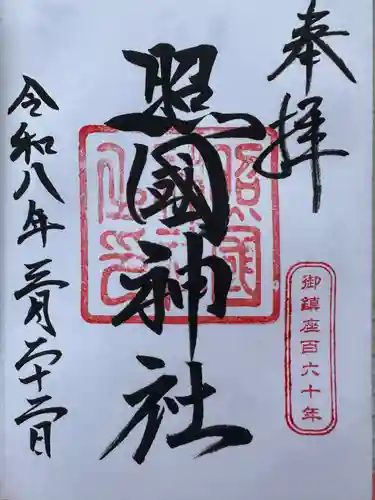 奉拝
照國神社
令和八年三月二十二日
御鎮座百六十年